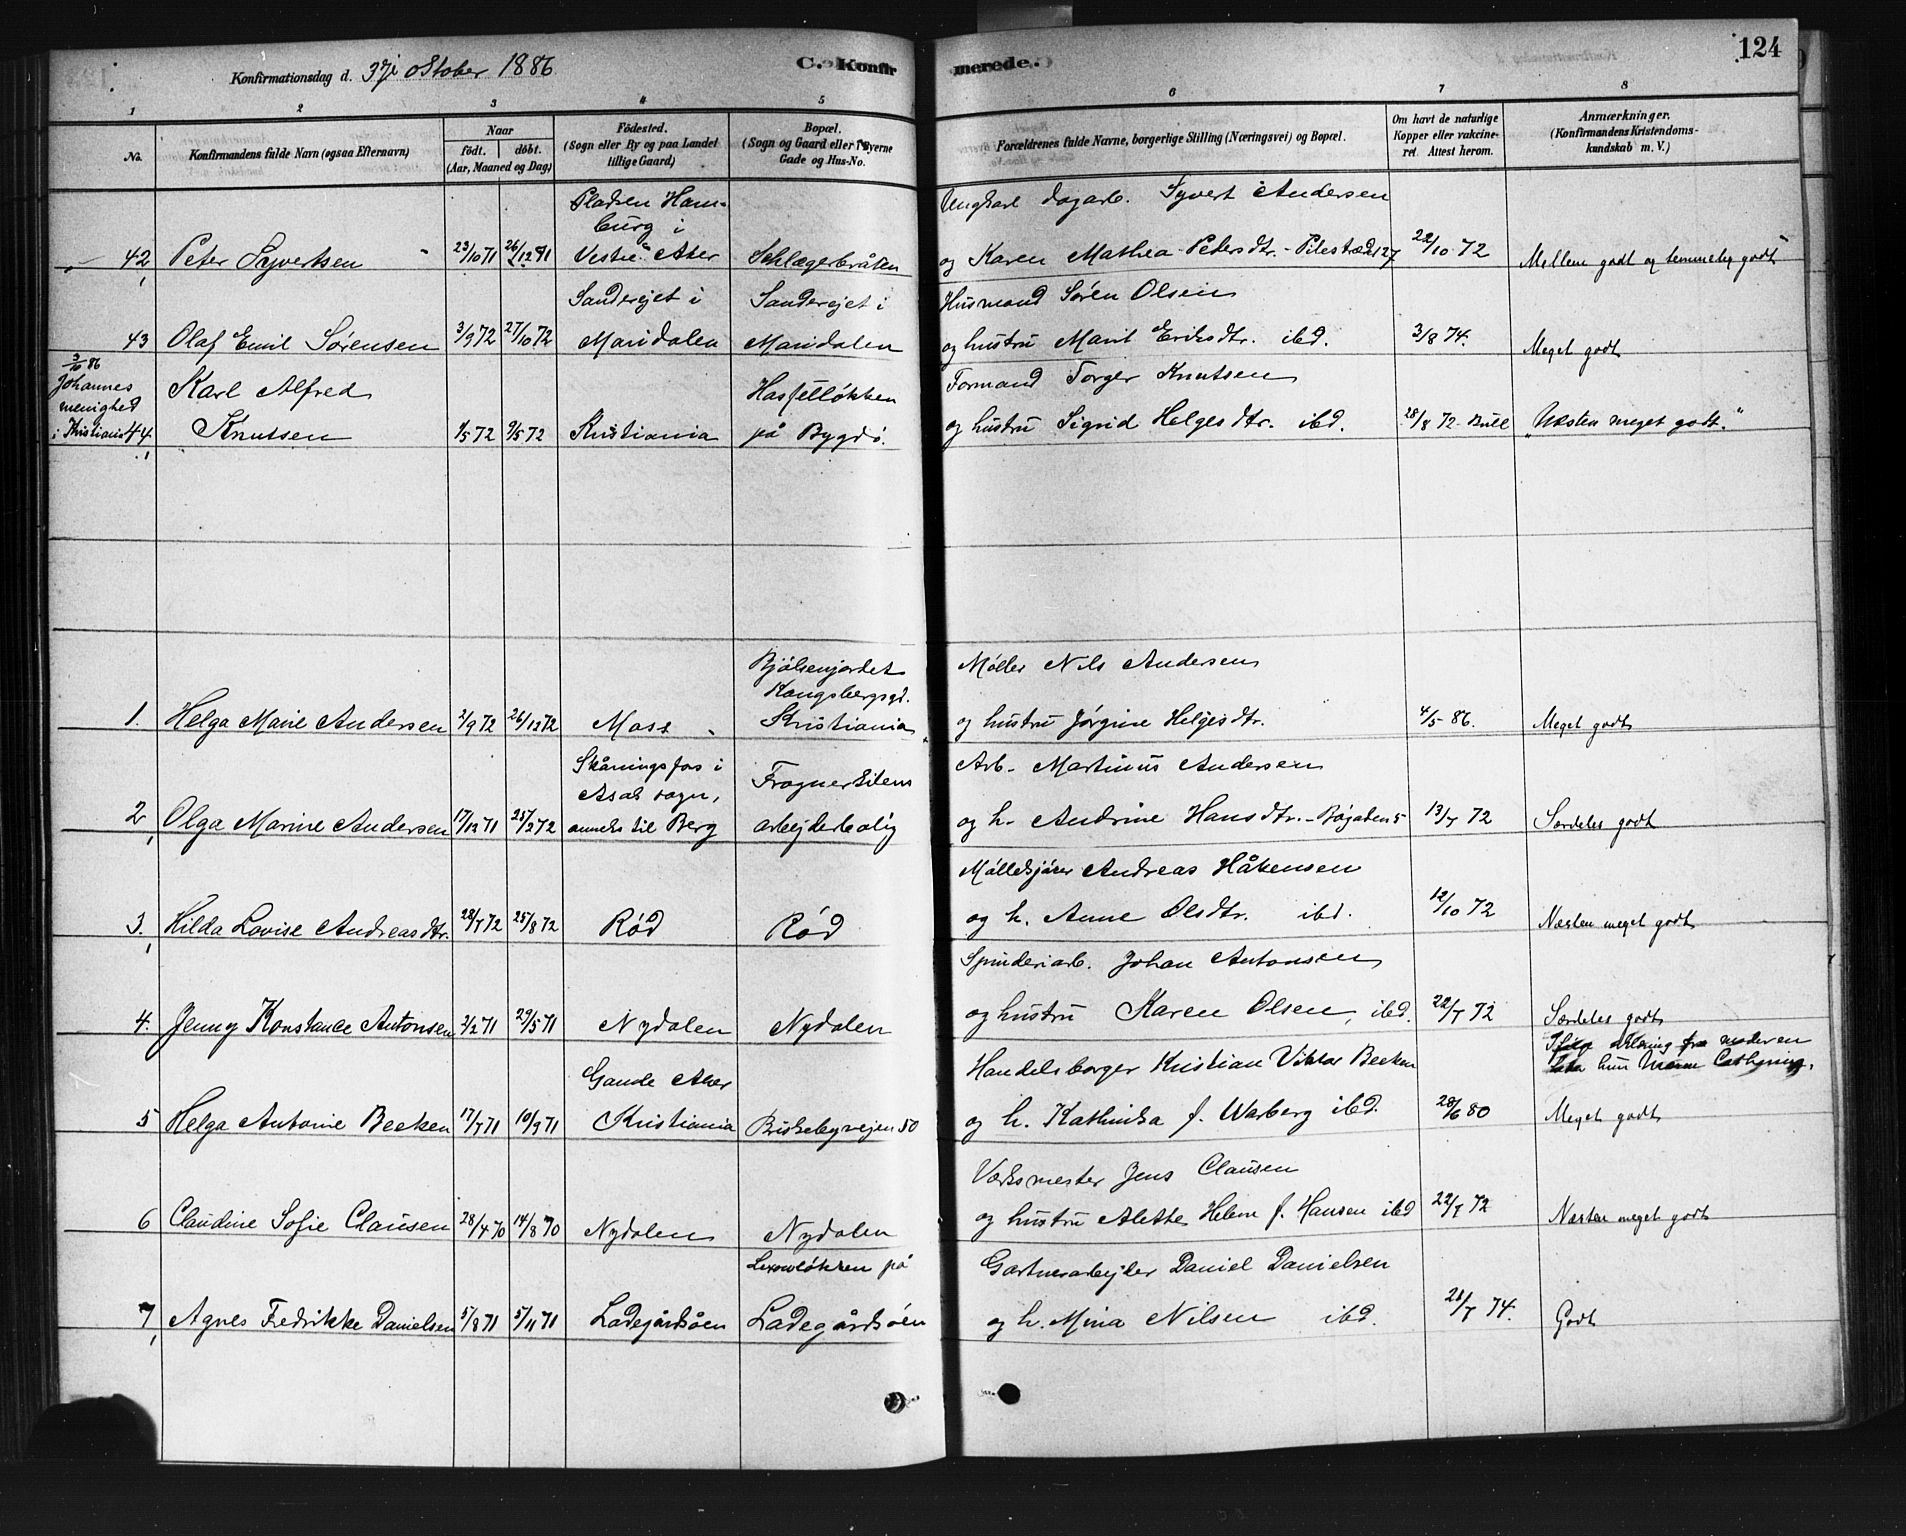 124
Konfirmationsdag d. 3die oktober 1886
C. Konfirmerede.
1 2 3 4 5 6 7 8
No.
Konfirmandens fulde Navn (ogsaa Efternavn)
Naar
födt. döbt.
(Aar, Maaned og Dag)
Födested.
(Sogn eller By og paa Landet
tillige Gaard)
Bopæl.
(Sogn og Gaard eller i Byerne
Gade og Hus-No.
Forældrenes fulde Navne, borgerlige Stilling (Næringsvei) og Bopæl.
Om havt de naturlige
Kopper eller vakcine-
ret. Attest herom.
Anmærkninger.
(Konfirmandens Kristendoms-
kundskab m. V.)
Pladsen Ham-
burg i
Ungkarl dagarb. Syvert Andersen
42 Peter Syvertsen 23/10 71 26/12 71 Vestre Aker Schlägerbråten og Karen Mathea Pedersdtr. - Pilestrædet 27 22/10 72 Mellem godt og temmelig godt
Sanderejet i Sanderejet i Husmand Søren Olsen
43 Olaf Emil Sørensen 3/9 72 27/10 72 Maridalen Maridalen og hustru Marit Eriksdtr. ibd. 3/8 74. Meget godt
3/10 86
Johannes
menighed
i Kristiania
Karl Alfred Formand Torger Knutsen
Hasselløkken
44 Knutsen 1/5 72 9/5 72 Kristiania på Bygdø. og hustru Sigrid Helgesdtr. ibd. 28/8 72 - Bull „Næsten meget godt."
Bjølsenjordet
Kongsbergsgd.
Møller Nils Andersen
1. Helga Marie Andersen 2/9 72 26/12 72 Moss Kristiania og hustru Jørgine Helgesdtr. 4/5 86. Meget godt
Skåningsfos i
Asak sogn,
Frognerkilens Arb. Martinus Andersen
2 Olga Marine Andersen 17/12 71 25/2 72 anneks til Berg arbejderbolig og h. Andrine Hansdtr. - Bøgaden 5 13/7 72 Særdeles godt
Møllekjører Andreas Håkensen
3. Hilda Lovise Andreasdtr. 28/7 72 25/8 72 Rød Rød og h. Anne Olsdtr. ibd. 12/10 72 Næsten meget godt
Spinderiarb. Johan Antonsen
4. Jenny Konstance Antonsen 2/2 71 29/5 71 Nydalen Nydalen og hustru Karen Olsen, ibd. 22/7 72 Særdeles godt
moderen
hun
Gamle Aker Handelsborger Kristian Viktor Becken
5 Helga Antonie Becken 17/7 71 10/9 71 Kristiania Briskebyvejen 50 og h. Kathinka f. Warberg ibd. 28/6 80 Meget godt
Værksmester Jens Clausen
6 Claudine Sofie Clausen 28/4 70 14/8 70 Nydalen Nydalen og hustru Alette Helene f. Hansen ibd 22/7 72 Næsten meget godt
Lexowløkken på Gartnerarbejder Daniel Danielsen
7 Agnes Fredrikke Danielsen 5/8 71 5/11 71 Ladegårdsøen Ladegårdsøen og h. Mina Nilsen ibd. 21/7 74. Godt